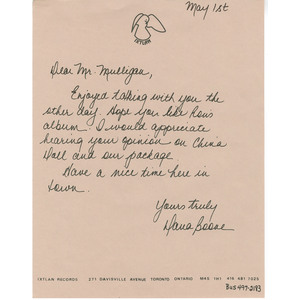 May 1st
IXTLAN
Dear Mr. Mulligan,
Enjoyed talking with you the
other day. Hope you like Rons
album. I would appreciate
hearing your opinion on China
Doll and our package.
Have a nice time here in
town.
Yours truly
Dana Boone
IXTLAN RECORDS 271 DAVISVILLE AVENUE TORONTO ONTARIO M4S 1H1 416 481 1220
Bus 497-2193